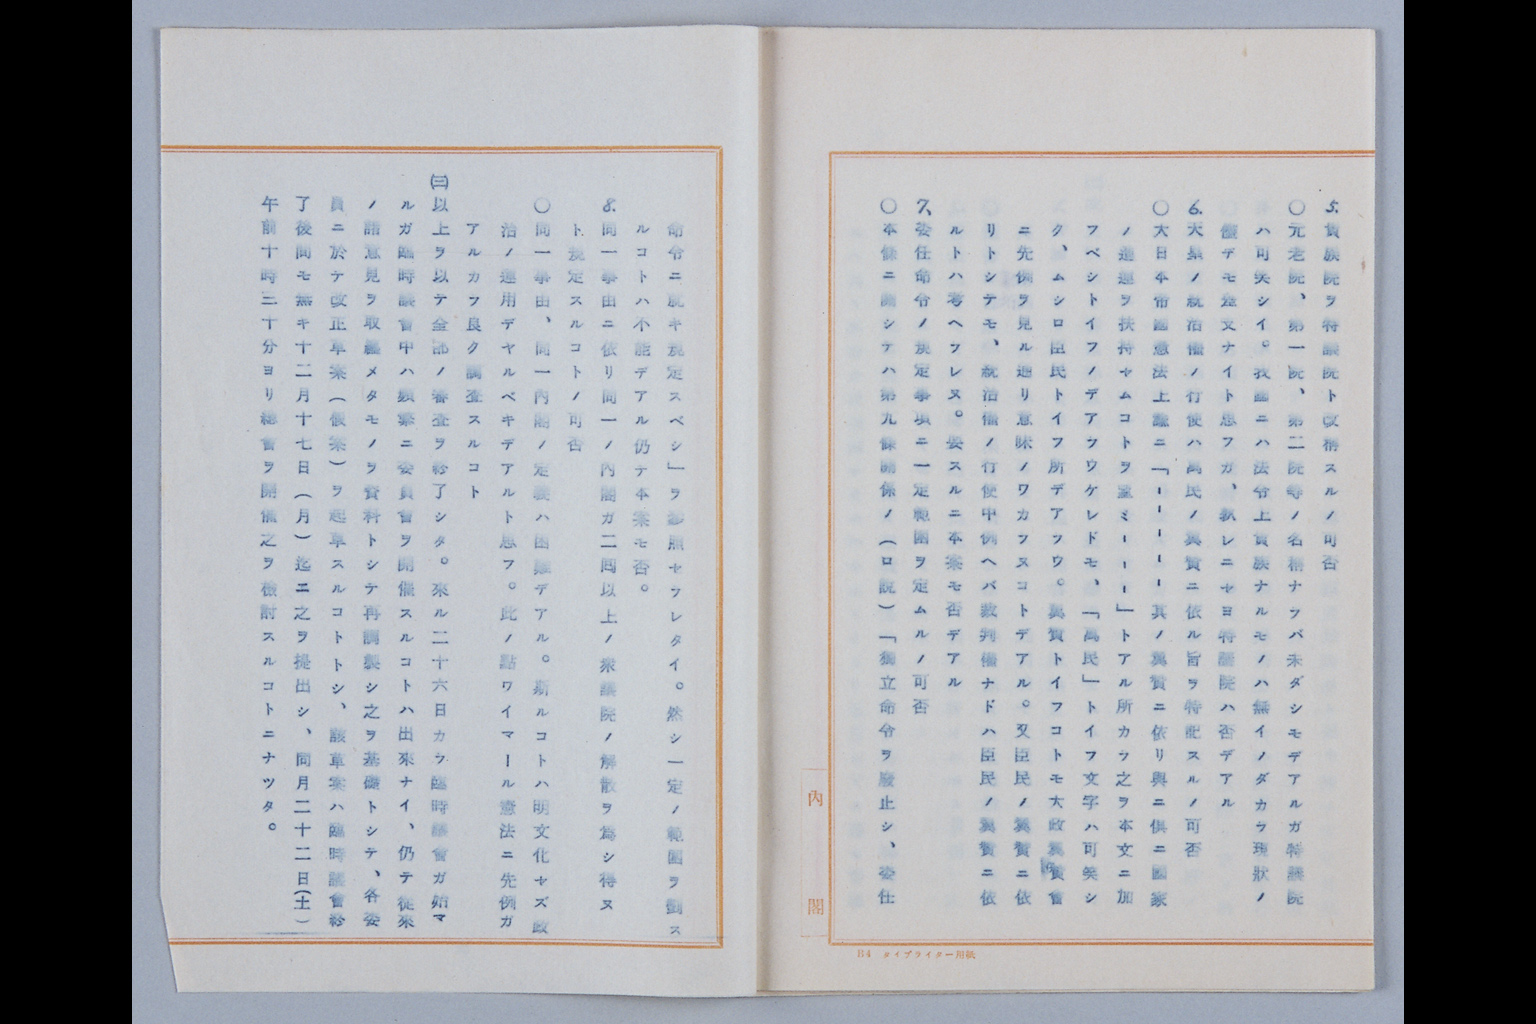 5.貴族院ヲ特議院ト改稱スルノ可否
〇元老院、第一院、第二院等ノ名稱ナラバ未ダシモデアルガ特議院
ハ可笑シイ。我國ニハ法令上貴族ナルモノハ無イノダカラ現狀ノ
儘デモ差支ナイト思フガ、孰レニセヨ特議院ハ否デアル
6.天皇ノ統治權ノ行使ハ萬民ノ翼贊ニ依ル旨ヲ特記スルノ可否
〇大日本帝國憲法上諭ニ「ーーーーー其ノ翼贊ニ依リ與ニ俱ニ國家
ノ進運ヲ扶持セムコトヲ望ミーーー」トアル所カラ之ヲ本文ニ加
フベシトイフノデアラウケレドモ、「萬民」トイフ文字ハ可笑シ
ク、ムシロ臣民トイフ所デアラウ。翼贊トイフコトモ大政翼贊會
ニ先例ヲ見ル通リ意味ノワカラヌコトデアル。又臣民ノ翼贊ニ依
リトシテモ、統治權ノ行使中例ヘバ裁判權ナドハ臣民ノ翼贊ニ依
ルトハ考ヘラレヌ。要スルニ本案モ否デアル
7、委任命令ノ規定事項ニ一定範圍ヲ定ムルノ可否
〇本條ニ關シテハ第九條關係ノ(ロ說)「獨立命令ヲ廢止シ、委任
命令ニ就キ規定スベシ」ヲ參照セラレタイ。然シ一定ノ範圍ヲ劃ス
ルコトハ不能デアル仍テ本案モ否。
8.同一事由ニ依リ同一ノ內閣ガ二囘以上ノ衆議院ノ解散ヲ爲シ得ヌ
ト規定スルコトノ可否
〇同一事由、同一內閣ノ定義ハ困難デアル。斯ルコトハ明文化セズ政
治ノ運用デヤルベキデアルト思フ。此ノ點ワイマール憲法ニ先例ガ
アルカラ良ク調査スルコト
㈢以上ヲ以テ全部ノ審査ヲ終了シタ。來ル二十六日カラ臨時議會ガ始マ
ルガ臨時議會中ハ頻繁ニ委員會ヲ開催スルコトハ出來ナイ、仍テ從來
ノ諸意見ヲ取纏メタモノヲ資料トシテ再調製シ之ヲ基礎トシテ、各委
員ニ於テ改正草案(假案)ヲ起草スルコトトシ、該草案ハ臨時議會終
了後間モ無キ十二月十七日(月)迄ニ之ヲ提出シ、同月二十二日(土)
午前十時三十分ヨリ總會ヲ開催之ヲ檢討スルコトニナツタ。
內閣
B4 タイプライター用紙